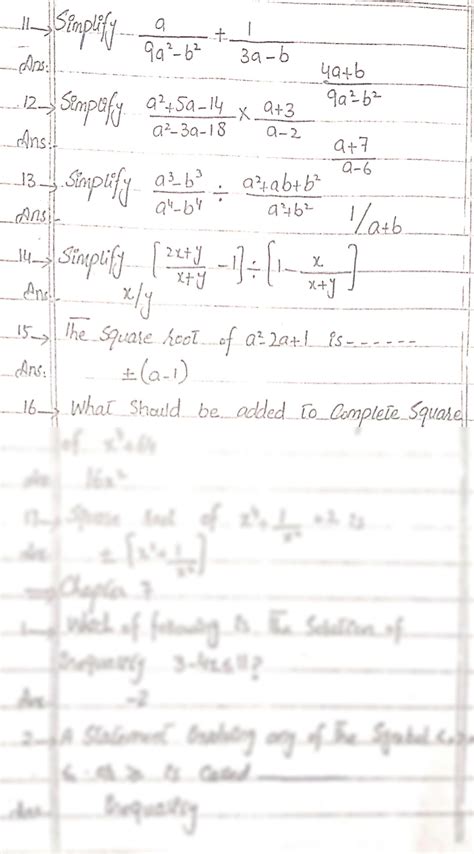 11→ Simplify a/9a²-b² + 1/3a-b
Ans: 4a+b/9a²-b²
12→ Simplify a²+5a-14/a²-3a-18 × a+3/a-2
Ans:- a+7/a-6
13→ Simplify a³-b³/a⁴-b⁴ ÷ a²+ab+b²/a²+b²
Ans:- 1/a+b
14→ Simplify [2x+y/x+y -1]÷[1- x/x+y]
Ans x/y
15→ The Square root of a²-2a+1 is------
Ans: ±(a-1)
16→ What should be added to Complete Square
of
16x²
17 Square root of x⁴+1/x⁴+2 is
Chapter 7
1 Which of following is the Solution of
Inequality
-2
2 A Statement any of the Symbol
is Called
Inequality